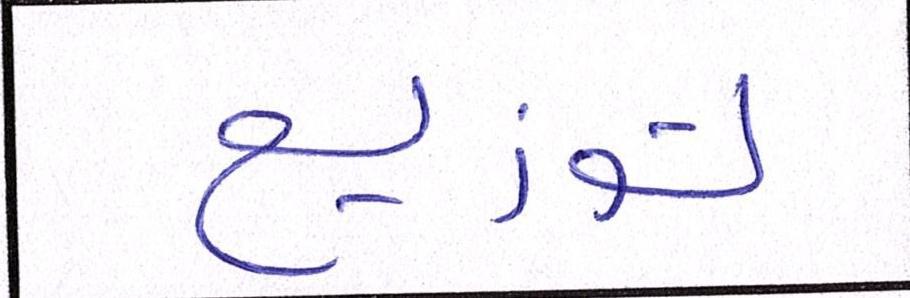 توزيع